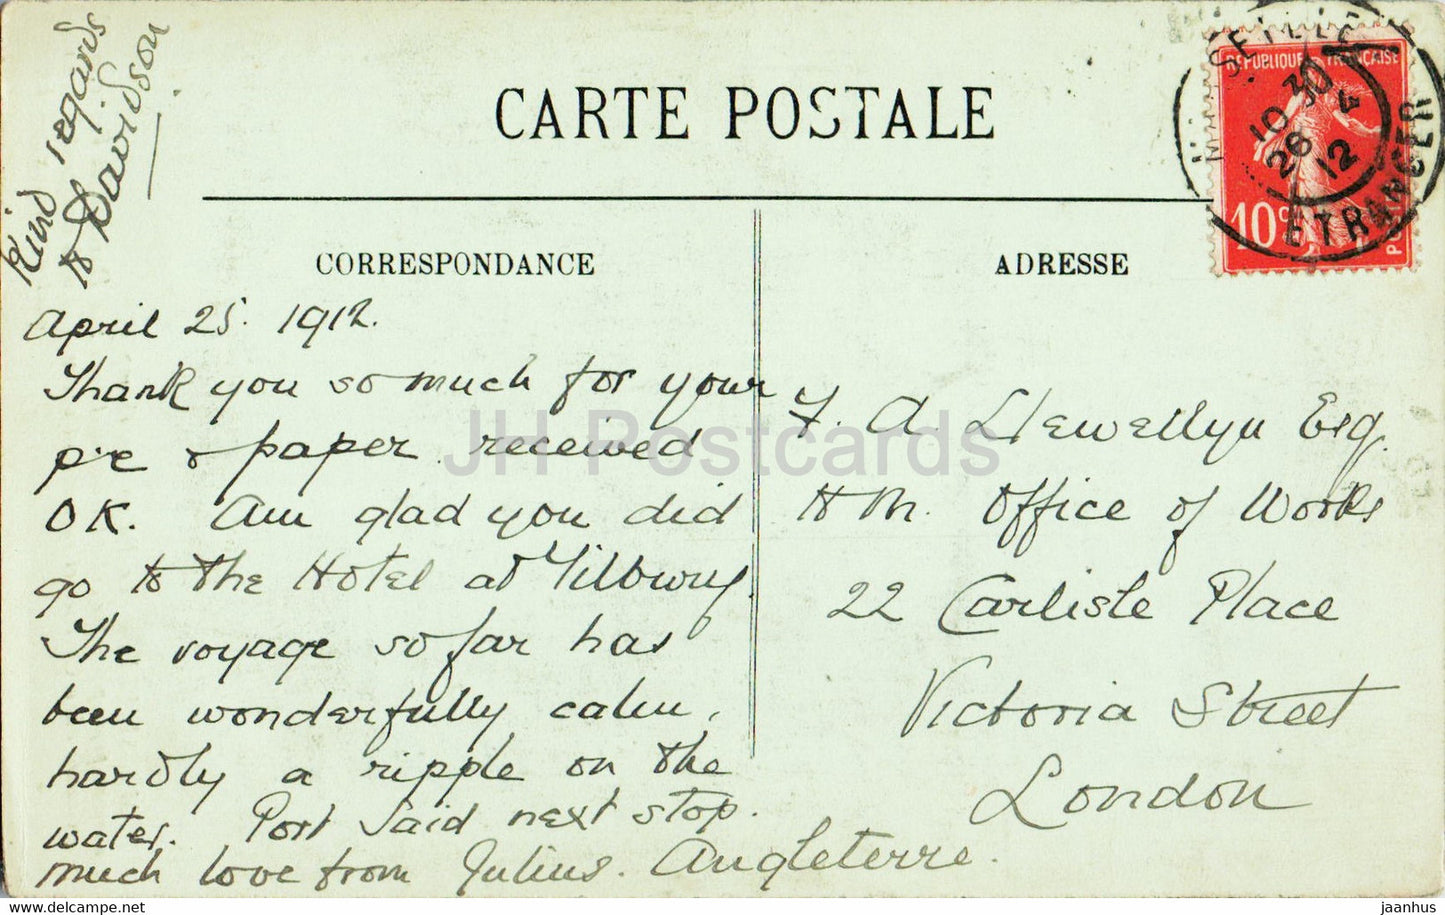 CARTE POSTALE
CORRESPONDANCE
ADRESSE
MARSEILLE
ETRANGER
10 30
28 4
12
REPUBLIQUE FRANÇAISE
10c
Kind regards
to Davidson
April 25. 1912.
Thank you so much for your
p.c & paper received
OK. Am glad you did
go to the Hotel at Tilbury.
The voyage so far has
been wonderfully calm,
hardly a ripple on the
water. Port Said next stop.
much love from Julius.
F. A. Llewellyn Esq.
H M. Office of Works
22 Carlisle Place
Victoria Street
London
Angleterre.
JH Postcards
www.delcampe.net
jaanhus